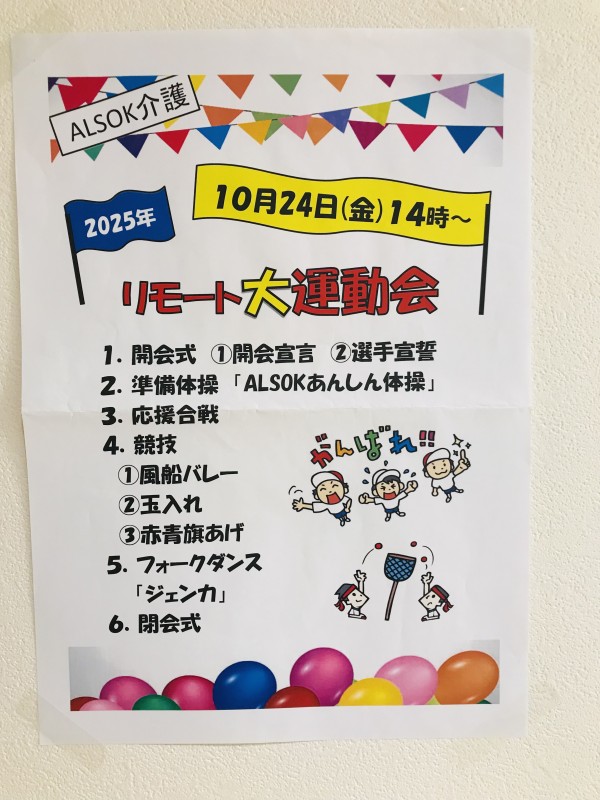 ALSOK介護
2025年
10月24日(金)14時～
リモート大運動会
1. 開会式 ①開会宣言 ②選手宣誓
2. 準備体操「ALSOKあんしん体操」
3. 応援合戦
4. 競技
①風船バレー
②玉入れ
③赤青旗あげ
がんばれ!!
5. フォークダンス
「ジェンカ」
6. 閉会式